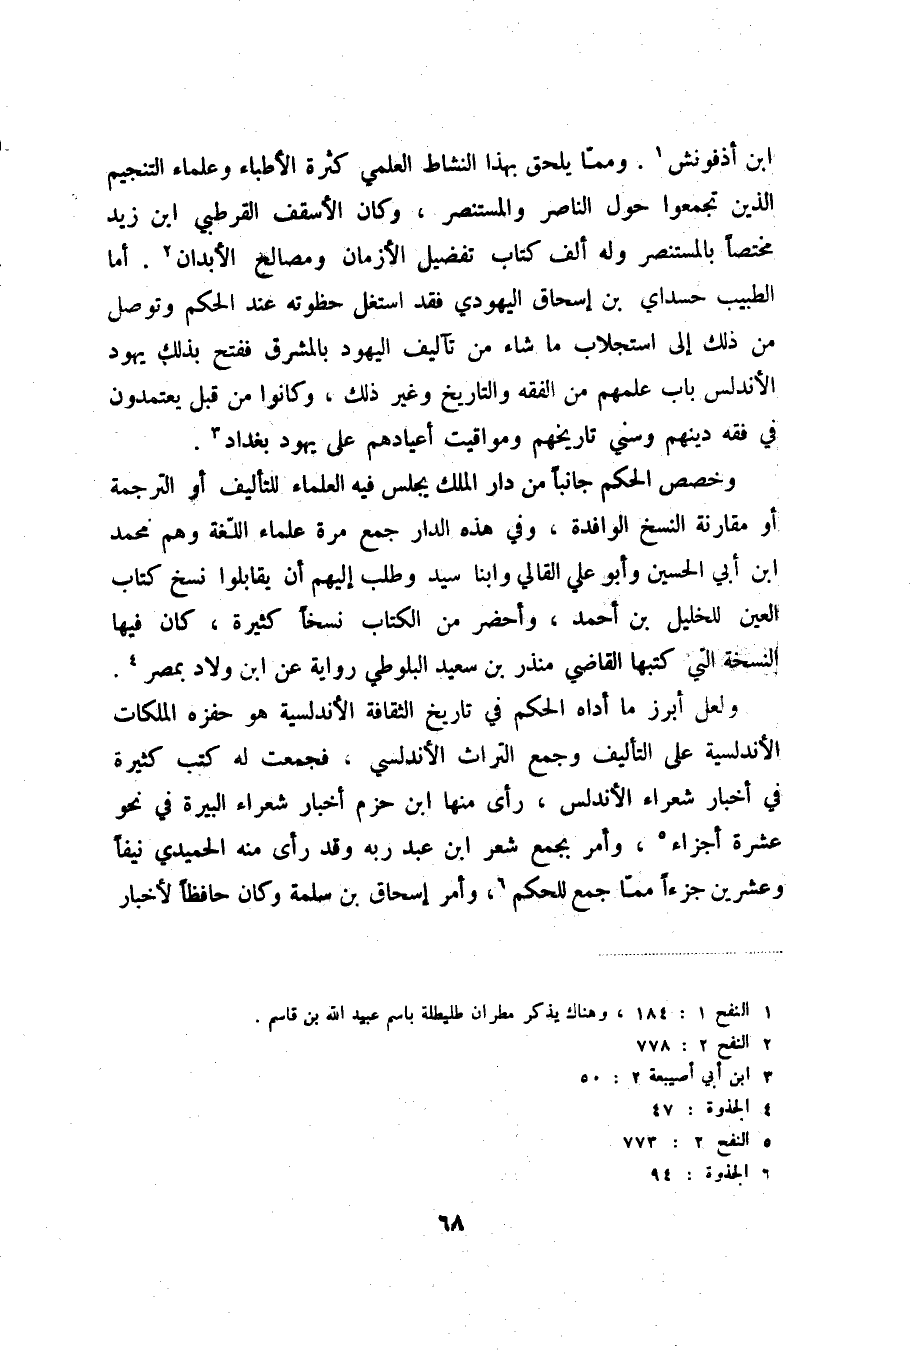 ابن أذفونش ١ . وممّا يلحق بهذا النشاط العلمي كثرة الأطباء وعلماء التنجيم
الذين تجمعوا حول الناصر والمستنصر ، وكان الأسقف القرطبي ابن زيد
مختصاً بالمستنصر وله ألف كتاب تفضيل الأزمان ومصالح الأبدان ٢ . أما
الطبيب حسداي بن إسحاق اليهودي فقد استغل حظوته عند الحكم وتوصل
من ذلك إلى استجلاب ما شاء من تآليف اليهود بالمشرق ففتح بذلك يهود
الأندلس باب علمهم من الفقه والتاريخ وغير ذلك ، وكانوا من قبل يعتمدون
في فقه دينهم وسني تاريخهم ومواقيت أعيادهم على يهود بغداد ٣ .
وخصص الحكم جانباً من دار الملك يجلس فيه العلماء للتأليف أو الترجمة
أو مقارنة النسخ الوافدة ، وفي هذه الدار جمع مرة علماء اللّغة وهم محمد
ابن أبي الحسين وأبو علي القالي وابنا سيد وطلب إليهم أن يقابلوا نسخ كتاب
العين للخليل بن أحمد ، وأحضر من الكتاب نسخاً كثيرة ، كان فيها
النسخة التي كتبها القاضي منذر بن سعيد البلوطي رواية عن ابن ولاد بمصر ٤ .
ولعل أبرز ما أداه الحكم في تاريخ الثقافة الأندلسية هو حفزه الملكات
الأندلسية على التأليف وجمع التراث الأندلسي ، فجمعت له كتب كثيرة
في أخبار شعراء الأندلس ، رأى منها ابن حزم أخبار شعراء البيرة في نحو
عشرة أجزاء ٥ ، وأمر بجمع شعر ابن عبد ربه وقد رأى منه الحميدي نيفاً
وعشرين جزءاً ممّا جمع للحكم ٦ ، وأمر إسحاق بن سلمة وكان حافظاً لأخبار
١ النفح ١ : ١٨٤ ، وهناك يذكر مطران طليطلة باسم عبيد الله بن قاسم .
٢ النفح ٢ : ٧٧٨
٣ ابن أبي أصيبعة ٢ : ٥٠
٤ الجذوة : ٤٧
٥ النفح ٢ : ٧٧٣
٦ الجذوة : ٩٤
٦٨